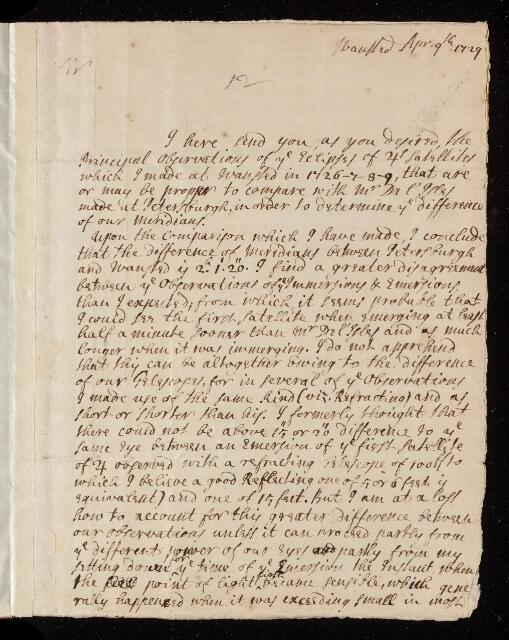 Wansted Apr. 9th. 1729
Sir
12
I here send you, as you desired, the
Principal observations of ye Eclipses of ♃s Satellites
which I made at Wansted in 1726-7-8-9, that are
or may be proper to compare with Mr De l'Isles
made at Petersburgh, in order to determine ye difference
of our Meridians.
Upon the Comparison which I have made, I conclude
that the difference of Meridians between Petersburgh
and Wansted is 2h. 1'. 20". I find a greater disagreement
between ye Observations of ye Immersions & Emersions,
than I expected; from which it seems probable that
I could see the first Satellite when emerging at least
half a minute sooner than Mr De l'Isles and as much
longer when it was immerging. I do not apprehend
that this can be altogether owing to the difference
of our Telescopes, for in several of ye Observations
I made use of the same kind (viz. Refracting) and as
short or shorter than his. I formerly thought that
there could not be above 15" or 20" difference to ye
same Eye between an Emersion of ye first Satellite
of ♃ observed with a refracting Telescope of 100 f. (to
which I believe a good Reflecting one of 5 or 6 feet is
equivalent) and one of 15 feet. But I am at a loss
how to account for this greater difference between
our observations unless it can proceed partly from
ye different power of our Eyes and partly from my
setting down ye time of ye Emersion the Instant when
the point of light became sensible, which gene
rally happened when it was exceeding small in most